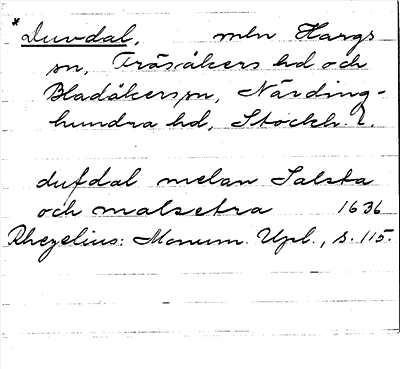 *Duvdal, mln Hargs
sn, Fräsåkers hd och
Bladåkers sn, Närding-
hundra hd, Stockh. l.
dufdal melan Salsta
och malsetra 1636
Rhezelius: Monum. Upl., s. 115.